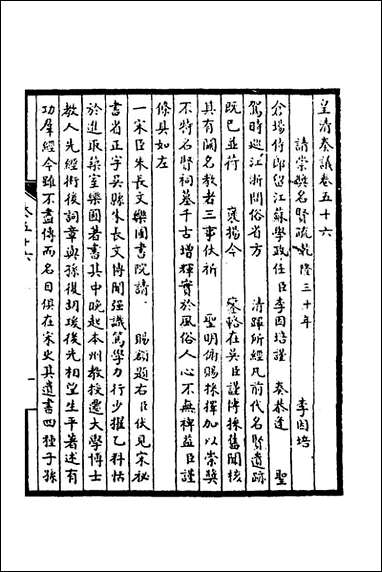 皇清奏議卷五十六
請崇奬名賢疏乾隆三十年 李因培
倉塲侍郎留江蘇學政任臣李因培謹 奏恭逢 聖
駕時巡江浙問俗省方 清蹕所經凡前代名賢遺跡
既已並荷 襃揚今 鑾輅在吳臣謹博採舊聞核
具有關名教者三事伏祈 聖明俯賜採擇加以崇奬
不特名賢祠墓千古增輝實於風俗人心不無裨益臣謹
條具如左
一宋臣朱長文樂圃書院請 賜額題右臣伏見宋秘
書省正字吳縣朱長文博聞强識篤學力行少擢乙科恬
於進取築室樂圃著書其中晚起本州教授遷太學博士
教人先經術後詞章與孫復胡瑗後先相望生平著述有
功羣經今雖不盡傳而名目俱在宋史其遺書四種子孫
卷五十六
一